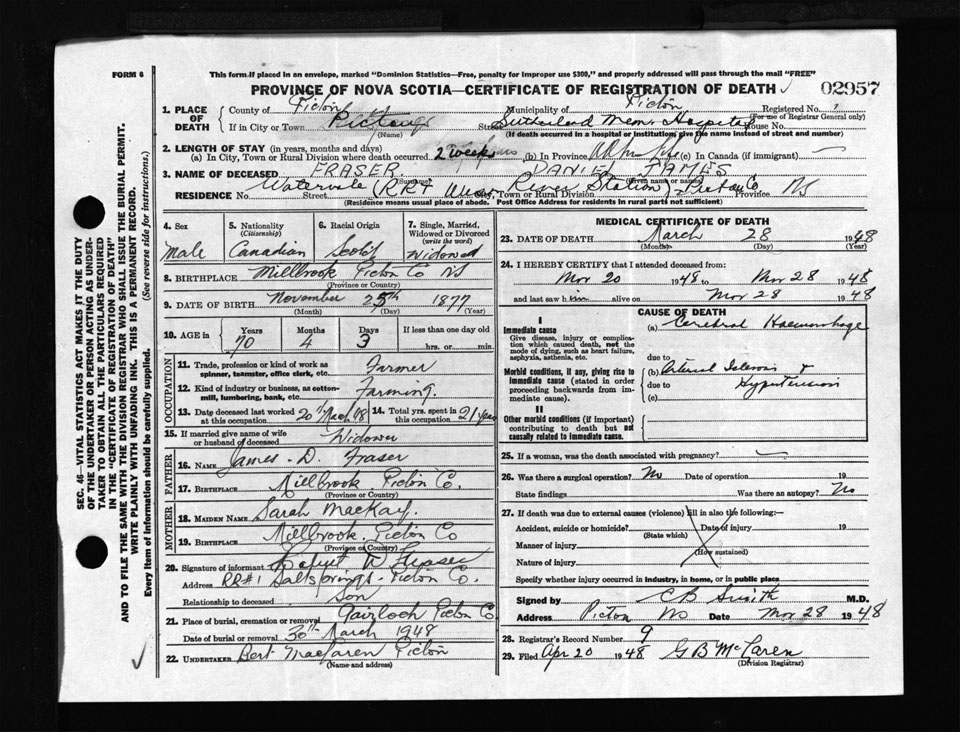 FORM 6
This form if placed in an envelope, marked "Dominion Statistics—Free, penalty for improper use $300," and properly addressed will pass through the mail "FREE"
PROVINCE OF NOVA SCOTIA—CERTIFICATE OF REGISTRATION OF DEATH
02957
1. PLACE OF DEATH
County of Pictou Municipality of Pictou Registered No.
(For use of Registrar General only)
If in City or Town Pictou Street Sutherland Mem. Hospital House No.
(Name) (If death occurred in a hospital or institution, give the name instead of street and number)
2. LENGTH OF STAY (in years, months and days)
(a) In City, Town or Rural Division where death occurred 2 weeks (b) In Province All his life (c) In Canada (if immigrant)
3. NAME OF DECEASED FRASER DANIEL JAMES
(Surname) (Given name or names)
RESIDENCE No. Watervale Street (RR# West City, Town or Rural Division River Station) Pictou Co Province NS
(Residence means usual place of abode. Post Office Address for residents in rural parts not sufficient)
4. Sex
Male
5. Nationality
(Citizenship)
Canadian
6. Racial Origin
Scotch
7. Single, Married, Widowed or Divorced
(write the word)
Widowed
8. BIRTHPLACE Millbrook Pictou Co NS
(Province or Country)
9. DATE OF BIRTH November 25th 1877
(Month) (Day) (Year)
10. AGE in
Years 70
Months 4
Days 3
If less than one day old
hrs. or min.
OCCUPATION
11. Trade, profession or kind of work as spinner, teamster, office clerk, etc. Farmer
12. Kind of industry or business, as cotton-mill, lumbering, bank, etc. Farming.
13. Date deceased last worked at this occupation 20th March/48
14. Total yrs. spent in this occupation 21 years
15. If married give name of wife or husband of deceased Widower
FATHER
16. NAME James D. Fraser
17. BIRTHPLACE Millbrook Pictou Co.
(Province or Country)
MOTHER
18. MAIDEN NAME Sarah MacKay.
19. BIRTHPLACE Millbrook Pictou Co
(Province or Country)
20. Signature of informant W Fraser
Address RR#1 Saltsprings Pictou Co.
Relationship to deceased Son
21. Place of burial, cremation or removal Gairloch Pictou Co
Date of burial or removal 30th March 1948
22. UNDERTAKER Bert MacLaren Pictou
(Name and address)
MEDICAL CERTIFICATE OF DEATH
23. DATE OF DEATH March 28 1948
(Month) (Day) (Year)
24. I HEREBY CERTIFY that I attended deceased from:
Mar 20 1948 to Mar 28 1948
and last saw him alive on Mar 28 1948
CAUSE OF DEATH
I
Immediate cause
Give disease, injury or complication which caused death, not the mode of dying, such as heart failure, asphyxia, asthenia, etc.
(a) Cerebral Haemorrhage
due to
Morbid conditions, if any, giving rise to immediate cause (stated in order proceeding backwards from immediate cause).
(b) Arterial Sclerosis &
due to Hypertension
(c)
II
Other morbid conditions (if important) contributing to death but not causally related to immediate cause.
25. If a woman, was the death associated with pregnancy?
26. Was there a surgical operation? No Date of operation 19
State findings Was there an autopsy? No
27. If death was due to external causes (violence) fill in also the following:—
Accident, suicide or homicide? Date of injury 19
(State which)
Manner of injury
(How sustained)
Nature of injury
Specify whether injury occurred in industry, in home, or in public place
Signed by C B Smith M.D.
Address Pictou NS Date Mar 28 1948
28. Registrar's Record Number 9
29. Filed Apr 20 1948 G B McLaren
(Division Registrar)
SEC. 46—VITAL STATISTICS ACT MAKES IT THE DUTY
OF THE UNDERTAKER OR PERSON ACTING AS UNDER-
TAKER TO OBTAIN ALL THE PARTICULARS REQUIRED
IN THE "CERTIFICATE OF REGISTRATION OF DEATH"
AND TO FILE THE SAME WITH THE DIVISION REGISTRAR WHO SHALL ISSUE THE BURIAL PERMIT.
WRITE PLAINLY WITH UNFADING INK. THIS IS A PERMANENT RECORD.
Every item of Information should be carefully supplied. (See reverse side for instructions.)